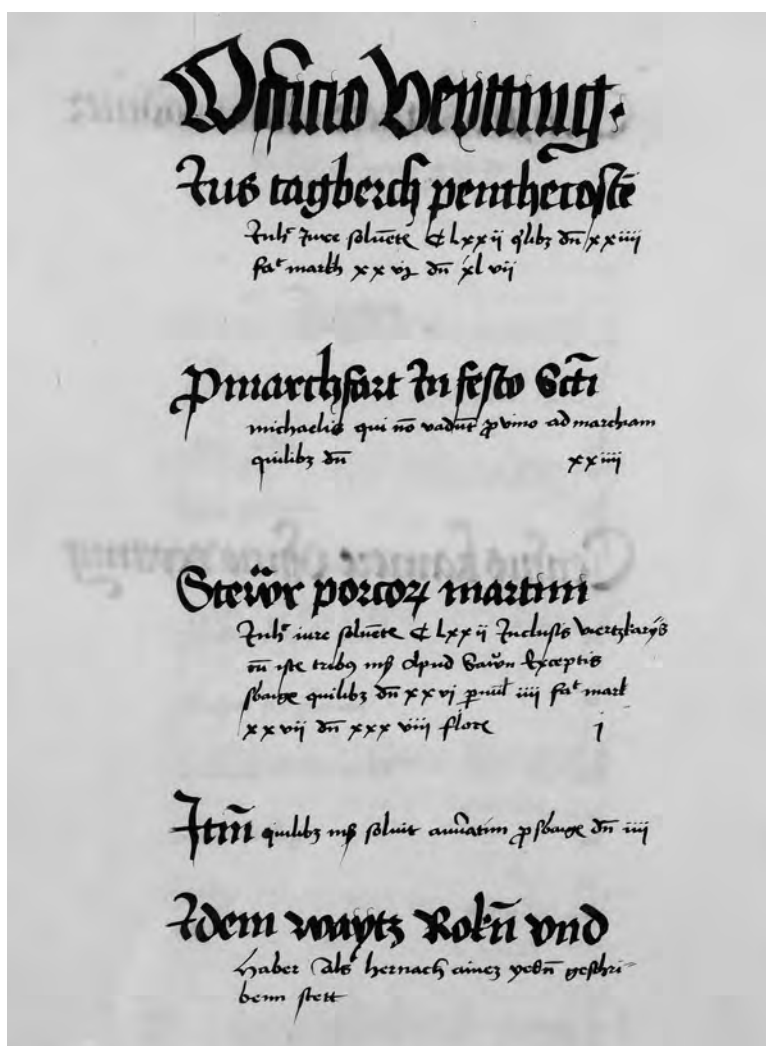 Officio Veytting.
Jus tagberch penthecostē
Juhꝰ Jure soluēte C lxxii qͥlibꝫ dn̄ xxiiii
facͭ markh xxvi dn̄ xlvii
Pmarchfart In festo Sctī
michaelis qui nō vadūt ꝓ vino ad marchiam
quilibꝫ dn̄ xxiiii
Stewr porcoꝝ martini
iure soluēte C lxxii Inclusis viertzkarys
cū iste tribꝰ Apud Exceptis
quilibꝫ dn̄ xxvi iiii facͭ mark
xxvii dn̄ xxxviii flore j
Itm̄ quilibꝫ soluit annuatim ꝓ dn̄ iiii
Idem waytz Rokn̄ vnd
Haber Als hernach ainez yedn̄ geschri-
benn stett